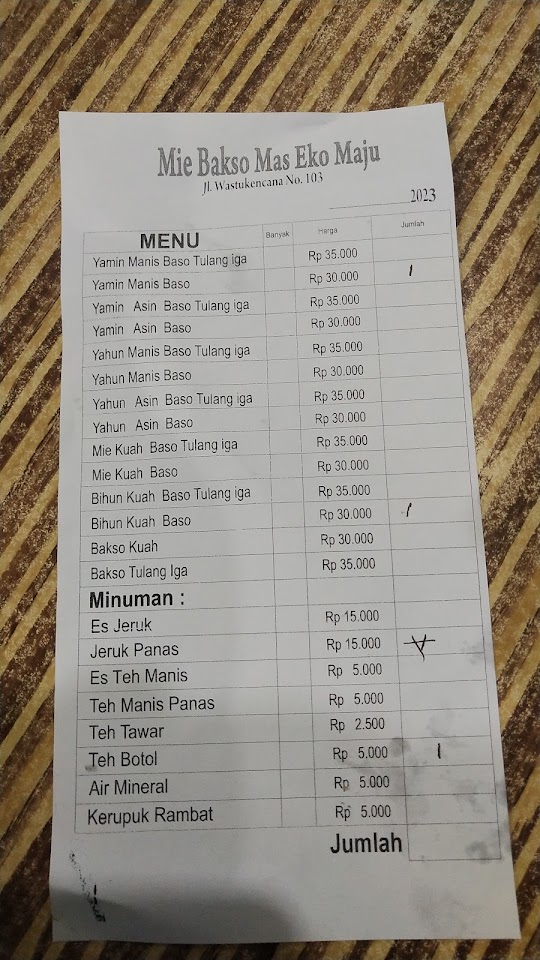 Mie Bakso Mas Eko Maju
Jl. Wastukencana No. 103
2023
MENU Banyak Harga Jumlah
Yamin Manis Baso Tulang iga Rp 35.000
Yamin Manis Baso Rp 30.000 1
Yamin Asin Baso Tulang iga Rp 35.000
Yamin Asin Baso Rp 30.000
Yahun Manis Baso Tulang iga Rp 35.000
Yahun Manis Baso Rp 30.000
Yahun Asin Baso Tulang iga Rp 35.000
Yahun Asin Baso Rp 30.000
Mie Kuah Baso Tulang iga Rp 35.000
Mie Kuah Baso Rp 30.000
Bihun Kuah Baso Tulang iga Rp 35.000
Bihun Kuah Baso Rp 30.000 1
Bakso Kuah Rp 30.000
Bakso Tulang Iga Rp 35.000
Minuman :
Es Jeruk Rp 15.000
Jeruk Panas Rp 15.000
Es Teh Manis Rp 5.000
Teh Manis Panas Rp 5.000
Teh Tawar Rp 2.500
Teh Botol Rp 5.000 1
Air Mineral Rp 5.000
Kerupuk Rambat Rp 5.000
Jumlah